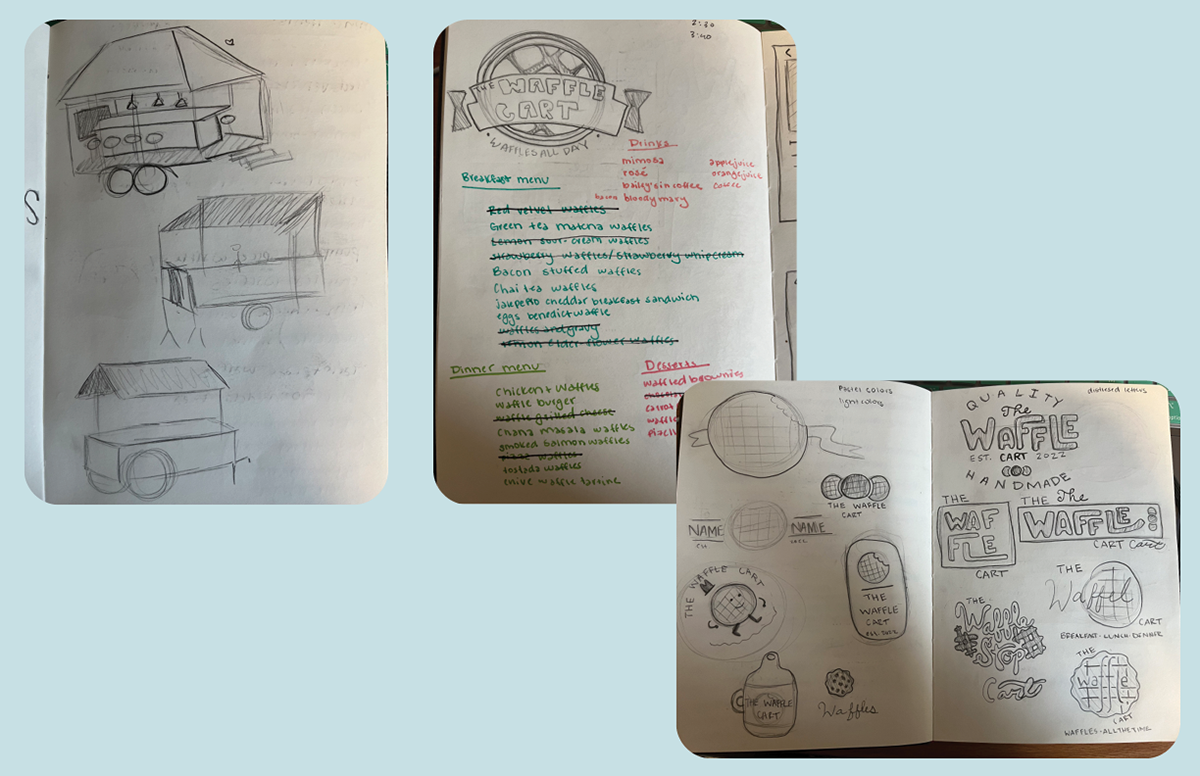 S
2:30
3:40
THE WAFFLE
CART
WAFFLES ALL DAY
Drinks
mimosa
rosé
bailey's in coffee
bacon bloody mary
apple juice
orange juice
coffee
Breakfast menu
Red velvet waffles
Green tea matcha waffles
Lemon sour cream waffles
strawberry waffles/strawberry whip cream
Bacon stuffed waffles
Chai tea waffles
jalepeño cheddar breakfast sandwich
eggs benedict waffle
waffles and gravy
lemon elder flower waffles
Dinner menu
Chicken + Waffles
waffle burger
waffle grilled cheese
Chana masala waffles
smoked salmon waffles
pizza waffles
tostada waffles
chive waffle tartine
Desserts
waffled brownies
carrot
Pastel colors
light colors
THE WAFFLE
CART
NAME
NAME
THE WAFFLE CART
THE
WAFFLE
CART
EST. 2022
THE WAFFLE
CART
Waffles
distressed letters
QUALITY
The
WAFFLE
EST. CART 2022
HANDMADE
THE
WAF
FLE
CART
THE The
WAFFLE
CART Cart
THE
Waffel
CART
BREAKFAST · LUNCH · DINNER
THE
Waffle
Stop
Cart
THE
Waffle
CART
WAFFLES · ALL THE TIME